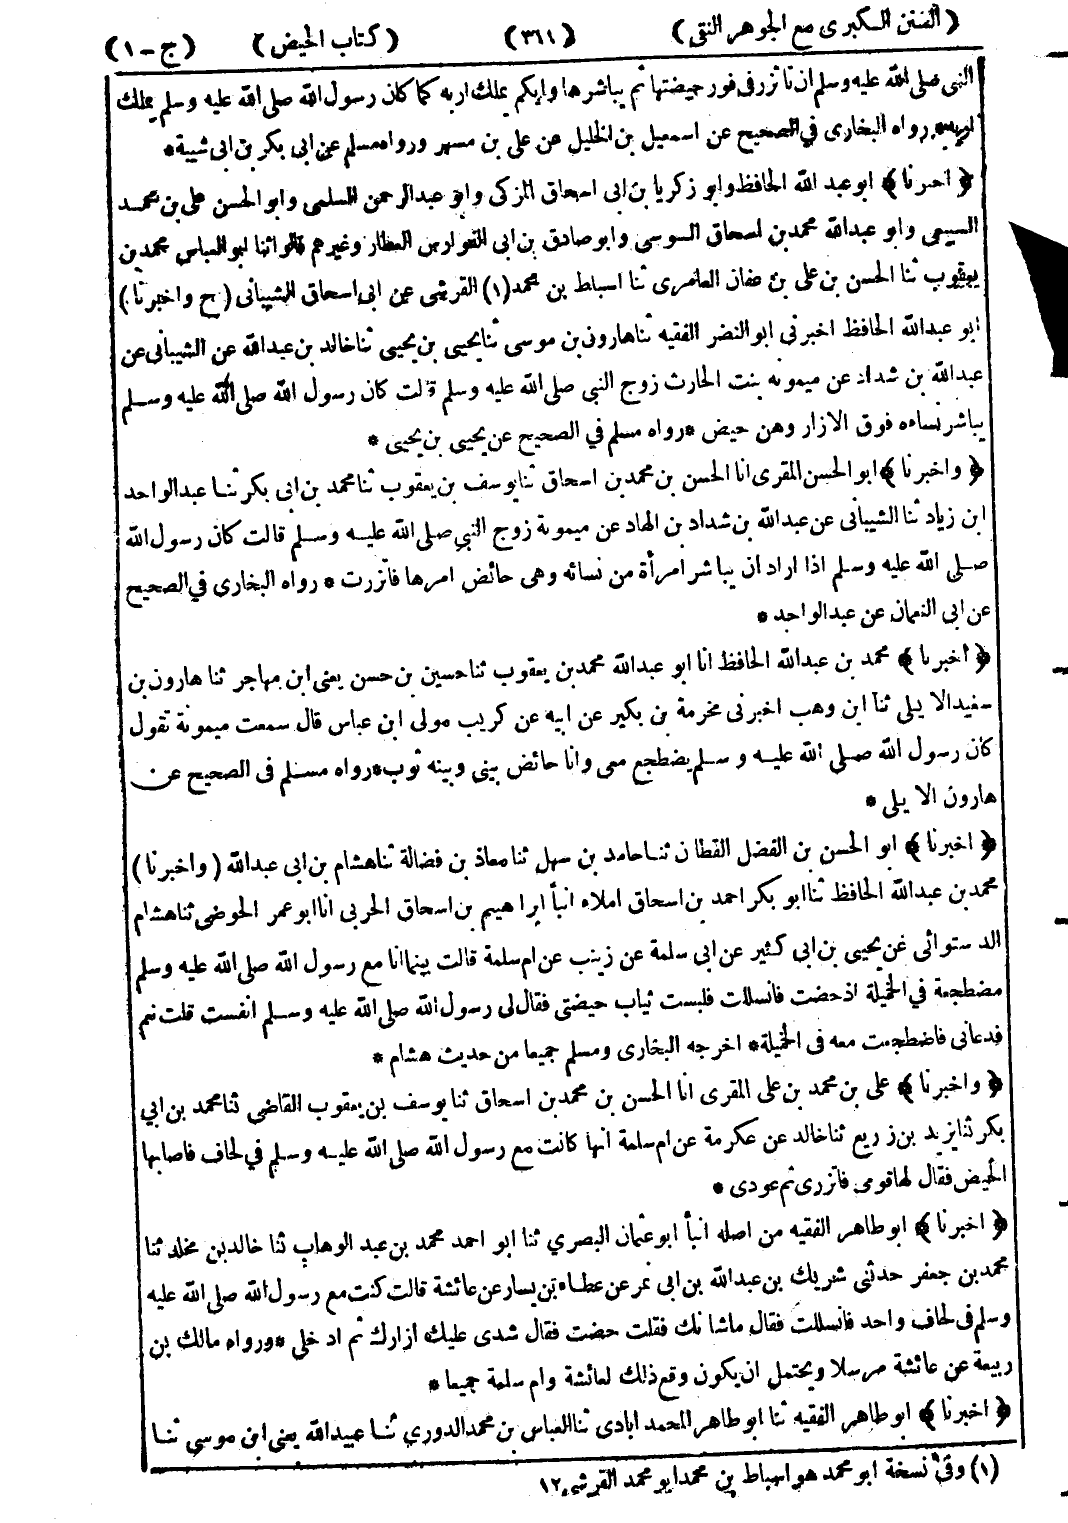 (السنن الكبرى مع الجوهر النقى) (٣٦١) (كتاب الحيض) (ج - ١)
النبى صلى الله عليه وسلم ان تأتزر فى فور حيضتها ثم يباشرها وايكم يملك اربه كما كان رسول الله صلى الله عليه وسلم يملك
اربه* رواه البخارى في الصحيح عن اسمعيل بن الخليل عن على بن مسهر ورواه مسلم عن ابى بكر بن ابى شيبة*
﴿ اخبرنا ﴾ ابو عبد الله الحافظ وابو زكريا بن ابى اسحاق المزكى وابو عبد الرحمن السلمى وابو الحسن على بن محمد
السبيعى وابو عبدالله محمد بن اسحاق السوسى وابو صادق بن ابى الفوارس العطار وغيرهم قالوا ثنا ابو العباس محمد بن
يعقوب ثنا الحسن بن على بن عفان العامرى ثنا اسباط بن محمد (١) القرشى عن ابى اسحاق الشيبانى (ح واخبرنا)
ابو عبدالله الحافظ اخبرنى ابو النضر الفقيه ثنا هارون بن موسى ثنا يحيى بن يحيى ثنا خالد بن عبدالله عن الشيبانى عن
عبدالله بن شداد عن ميمونه بنت الحارث زوج النبى صلى الله عليه وسلم قالت كان رسول الله صلى الله عليه وسلم
يباشر نساءه فوق الازار وهن حيض *رواه مسلم في الصحيح عن يحيى بن يحيى *
﴿ واخبرنا ﴾ ابو الحسن المقرى انا الحسن بن محمد بن اسحاق ثنا يوسف بن يعقوب ثنا محمد بن ابى بكر ثنا عبد الواحد
ابن زياد ثنا الشيبانى عن عبدالله بن شداد بن الهاد عن ميمونة زوج النبى صلى الله عليه وسلم قالت كان رسول الله
صلى الله عليه وسلم اذا اراد ان يباشر امرأة من نسائه وهى حائض امرها فأتزرت * رواه البخارى في الصحيح
عن ابى النعمان عن عبد الواحد *
﴿ اخبرنا ﴾ محمد بن عبدالله الحافظ انا ابو عبدالله محمد بن يعقوب ثنا حسين بن حسن يعنى ابن مهاجر ثنا هارون بن
سعيد الايلى ثنا ابن وهب اخبرنى مخرمة بن بكير عن ابيه عن كريب مولى ابن عباس قال سمعت ميمونة تقول
كان رسول الله صلى الله عليه وسلم يضطجع معى وانا حائض بينى وبينه ثوب*رواه مسلم فى الصحيح عن
هارون الايلى *
﴿ اخبرنا ﴾ ابو الحسن بن الفضل القطان ثنا حامد بن سهل ثنا معاذ بن فضالة ثنا هشام بن ابى عبدالله (واخبرنا)
محمد بن عبدالله الحافظ ثنا ابو بكر احمد بن اسحاق املاء انبأ ابراهيم بن اسحاق الحربى انا ابو عمر الحوضى ثنا هشام
الدستوائى عن يحيى بن ابى كثير عن ابى سلمة عن زينب عن ام سلمة قالت بينما انا مع رسول الله صلى الله عليه وسلم
مضطجعة في الخميلة اذ حضت فانسللت فلبست ثياب حيضتى فقال لى رسول الله صلى الله عليه وسلم انفست قلت نعم
فدعانى فاضطجعت معه فى الخميلة* اخرجه البخارى ومسلم جميعا من حديث هشام *
﴿ واخبرنا ﴾ على بن محمد بن على المقرى انا الحسن بن محمد بن اسحاق ثنا يوسف بن يعقوب القاضى ثنا محمد بن ابي
بكر ثنا يزيد بن زريع ثنا خالد عن عكرمة عن ام سلمة انها كانت مع رسول الله صلى الله عليه وسلم في لحاف فاصابها
الحيض فقال لها قومى فاتزرى ثم عودى *
﴿ اخبرنا ﴾ ابو طاهر الفقيه من اصله انبأ ابو عثمان البصري ثنا ابو احمد محمد بن عبد الوهاب ثنا خالد بن مخلد ثنا
محمد بن جعفر حدثنى شريك بن عبدالله بن ابى نمر عن عطاء بن يسار عن عائشة قالت كنت مع رسول الله صلى الله عليه
وسلم فى لحاف واحد فانسللت فقال ماشانك فقلت حضت فقال شدى عليك ازارك ثم ادخلى *ورواه مالك بن
ربيعة عن عائشة مرسلا ويحتمل ان يكون وقع ذلك لعائشة وام سلمة جميعا *
﴿ اخبرنا ﴾ ابو طاهر الفقيه ثنا ابو طاهر المحمد ابادى ثنا العباس بن محمد الدوري ثنا عبيدالله يعنى ابن موسى ثنا
(١) وفى نسخة ابو محمد هو اسباط بن محمد ابو محمد القرشى ١٢